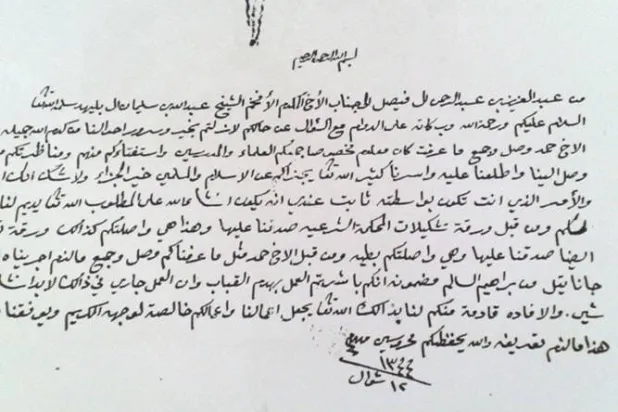 بسم الله الرحمن الرحيم
من عبدالعزيز بن عبدالرحمن ال فيصل الى جناب الأخ المكرم الأفخم الشيخ عبدالله بن سليمان ال بليهد سلمه الله تعا
السلام عليكم ورحمة الله وبركاته على الدوام مع السؤال عن حالكم لازلتم بخير وسرور احوالنا من كرم الله جميله
الاخ حمد وصل وجميع ما عرفت كان معلوم مخصوصا جاء بكم العلماء والمدرسين واستفتاؤكم منهم ومناظرتكم
وصل الينا واطلعنا عليه واسرنا كثير الله تعا يجزاكم عن الاسلام والمسلمين خير الجزاء ولا شك ان
والأمر الذي انت تكون بواسطته ثابت عندي انه يكون انشاء الله على المطلوب الله تعا يديم لنا
ومن قبل ورقة تشكيلات المحكمة الشرعيه صدقنا عليها وهذا هي واصلتكم كذالك ورقة
ايضا صدقنا عليها وهي واصلتكم بطيه ومن قبل الاخ حمد مثل ما عرفناكم وصل وجميع مالزم اجريناه
جانا تيل من براهيم السالم مضمونه انكم باشرتم العمل بهدم القباب وان العمل جاري في ذالك لابد انشا
والافاده قادمة منكم لنا بذالك الله تعا يجعل اعمالنا واعمالكم خالصة لوجهه الكريم ويوفقنا
هذا مالزم تعريفه والله يحفظكم محروسين
١٣٤٤
١٢ شوال